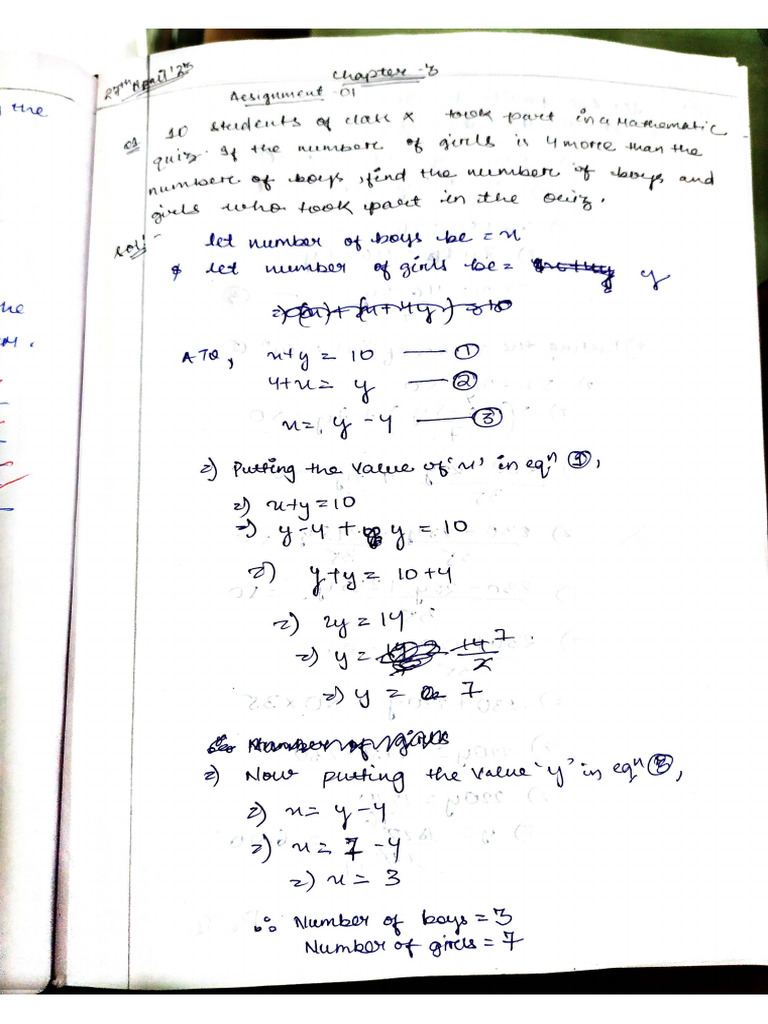 27th April'23
Chapter-3
Assignment-01
Q1 10 students of class X took part in a Mathematic
quiz. If the number of girls is 4 more than the
number of boys, find the number of boys and
girls who took part in the quiz.
Sol:- let number of boys be = x
let number of girls be = y
ATQ, x+y = 10 —— ①
4+x = y —— ②
x = y - 4 —— ③
=) Putting the value of 'x' in eqn ①,
=) x+y = 10
=) y-4 + y = 10
=) y+y = 10+4
=) 2y = 14
=) y = 14/2 7
=) y = 7
=) Now putting the value 'y' in eqn ③,
=) x = y - 4
=) x = 7 - 4
=) x = 3
∴ Number of boys = 3
Number of girls = 7
the